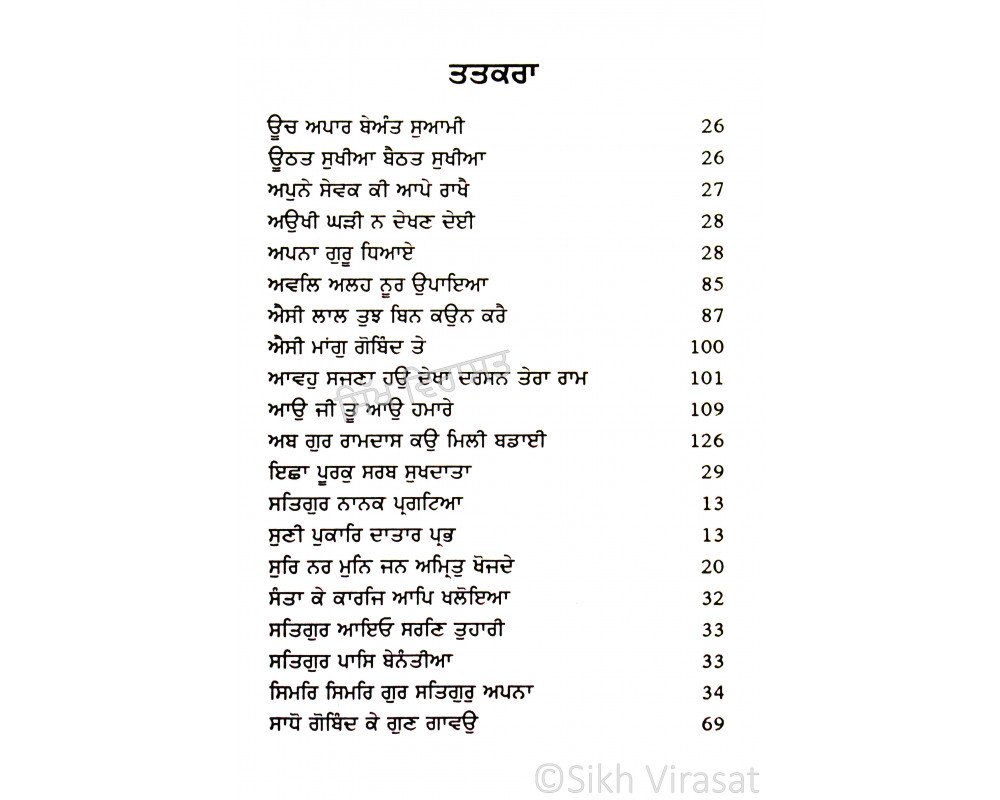 ਤਤਕਰਾ
ਊਚ ਅਪਾਰ ਬੇਅੰਤ ਸੁਆਮੀ 26
ਊਠਤ ਸੁਖੀਆ ਬੈਠਤ ਸੁਖੀਆ 26
ਅਪੁਨੇ ਸੇਵਕ ਕੀ ਆਪੇ ਰਾਖੈ 27
ਅਉਖੀ ਘੜੀ ਨ ਦੇਖਣ ਦੇਈ 28
ਅਪਨਾ ਗੁਰੂ ਧਿਆਏ 28
ਅਵਲਿ ਅਲਹ ਨੂਰ ਉਪਾਇਆ 85
ਐਸੀ ਲਾਲ ਤੁਝ ਬਿਨ ਕਉਨ ਕਰੈ 87
ਐਸੀ ਮਾਂਗੁ ਗੋਬਿੰਦ ਤੇ 100
ਆਵਹੁ ਸਜਣਾ ਹਉ ਦੇਖਾ ਦਰਸਨ ਤੇਰਾ ਰਾਮ 101
ਆਉ ਜੀ ਤੂ ਆਉ ਹਮਾਰੇ 109
ਅਬ ਗੁਰ ਰਾਮਦਾਸ ਕਉ ਮਿਲੀ ਬਡਾਈ 126
ਇਛਾ ਪੂਰਕੁ ਸਰਬ ਸੁਖਦਾਤਾ 29
ਸਤਿਗੁਰ ਨਾਨਕ ਪ੍ਰਗਟਿਆ 13
ਸੁਣੀ ਪੁਕਾਰਿ ਦਾਤਾਰ ਪ੍ਰਭ 13
ਸੁਰਿ ਨਰ ਮੁਨਿ ਜਨ ਅਮ੍ਰਿਤੁ ਖੋਜਦੇ 20
ਸੰਤਾ ਕੇ ਕਾਰਜਿ ਆਪਿ ਖਲੋਇਆ 32
ਸਤਿਗੁਰ ਆਇਓ ਸਰਣਿ ਤੁਹਾਰੀ 33
ਸਤਿਗੁਰ ਪਾਸਿ ਬੇਨੰਤੀਆ 33
ਸਿਮਰਿ ਸਿਮਰਿ ਗੁਰ ਸਤਿਗੁਰੁ ਅਪਨਾ 34
ਸਾਧੋ ਗੋਬਿੰਦ ਕੇ ਗੁਣ ਗਾਵਉ 69
ਸਿੱਖ ਵਿਰਾਸਤ
©Sikh Virasat